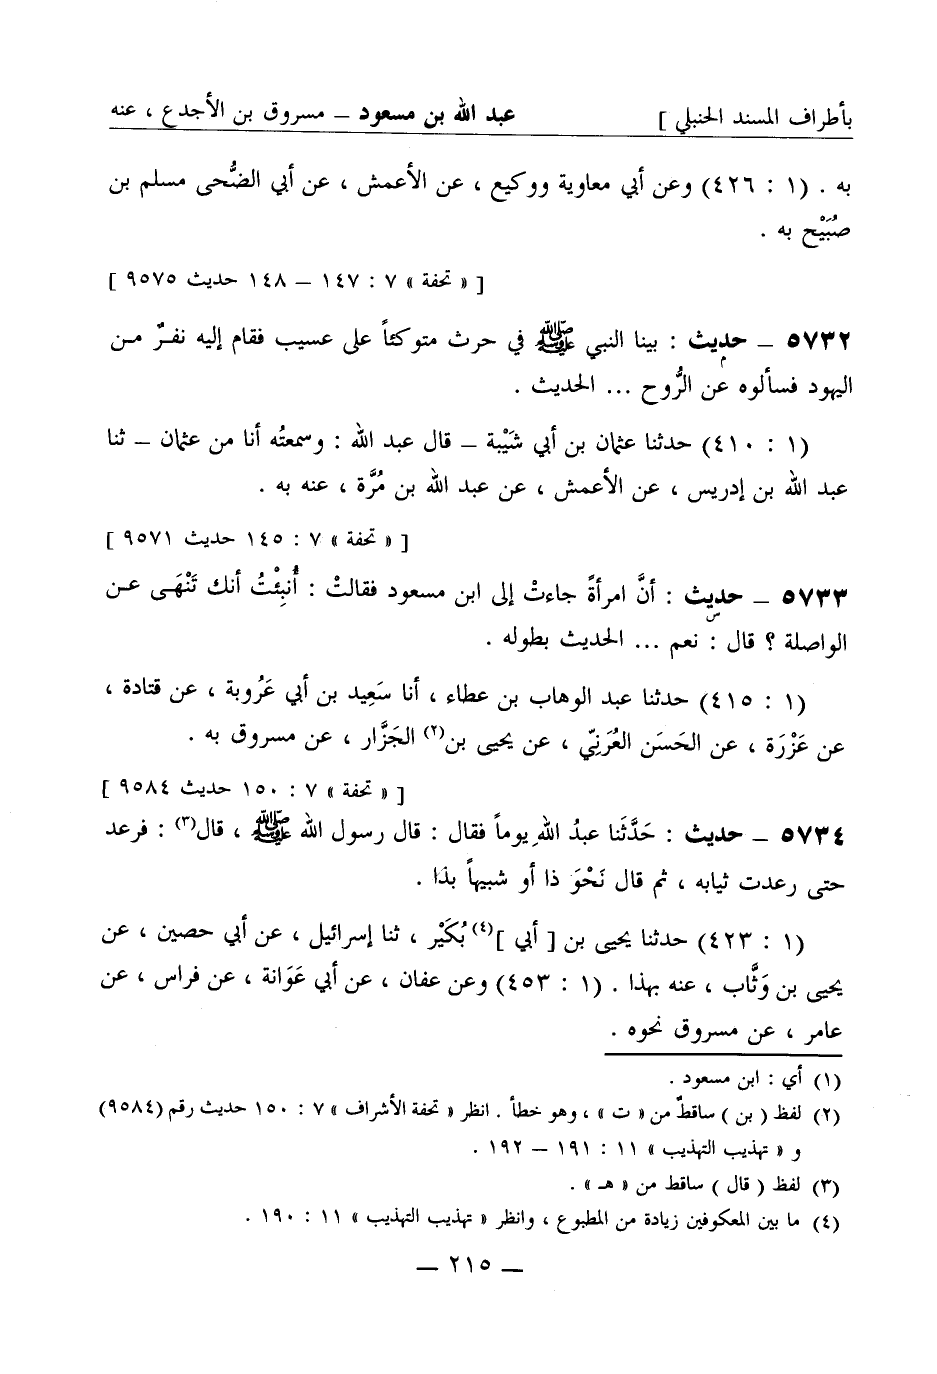 بأطراف المسند الحنبلي ] عبد الله بن مسعود – مسروق بن الأجدع ، عنه
به . (١ : ٤٢٦) وعن أبي معاوية ووكيع ، عن الأعمش ، عن أبي الضُّحى مسلم بن
صُبَيْح به .
[ « تحفة » ٧ : ١٤٧ – ١٤٨ حديث ٩٥٧٥ ]
٥٧٣٢ – حديث : بينا النبي ﷺ في حرث متوكئاً على عسيب فقام إليه نفرٌ من
م
اليهود فسألوه عن الرُّوح ... الحديث .
(١ : ٤١٠) حدثنا عثمان بن أبي شَيْبة – قال عبد الله : وسمعتُه أنا من عثمان – ثنا
عبد الله بن إدريس ، عن الأعمش ، عن عبد الله بن مُرَّة ، عنه به .
[ « تحفة » ٧ : ١٤٥ حديث ٩٥٧١ ]
٥٧٣٣ – حديث : أنَّ امرأةً جاءتْ إلى ابن مسعود فقالتْ : أُنبِئْتُ أنك تَنْهَى عن
س
الواصلة ؟ قال : نعم ... الحديث بطوله .
(١ : ٤١٥) حدثنا عبد الوهاب بن عطاء ، أنا سَعِيد بن أبي عَرُوبة ، عن قتادة ،
عن عَزْرَة ، عن الحَسَن العُرَنِيّ ، عن يحيى بن(٢) الجَزَّار ، عن مسروق به .
[ « تحفة » ٧ : ١٥٠ حديث ٩٥٨٤ ]
٥٧٣٤ – حديث : حَدَّثَنا عبدُ اللهِ يوماً فقال : قال رسول الله ﷺ ، قال(٣) : فرعد
حتى رعدت ثيابه ، ثم قال نَحْوَ ذا أو شبيهاً بذا .
(١ : ٤٢٣) حدثنا يحيى بن [ أبي ](٤) بُكَيْر ، ثنا إسرائيل ، عن أبي حصين ، عن
يحيى بن وَثَّاب ، عنه بهذا . (١ : ٤٥٣) وعن عفان ، عن أبي عَوَانة ، عن فراس ، عن
عامر ، عن مسروق نحوه .
(١) أي : ابن مسعود .
(٢) لفظ ( بن ) ساقطٌ من « ت » ، وهو خطأ . انظر « تحفة الأشراف » ٧ : ١٥٠ حديث رقم (٩٥٨٤)
و « تهذيب التهذيب » ١١ : ١٩١ – ١٩٢ .
(٣) لفظ ( قال ) ساقط من « هـ » .
(٤) ما بين المعكوفين زيادة من المطبوع ، وانظر « تهذيب التهذيب » ١١ : ١٩٠ .
– ٢١٥ –